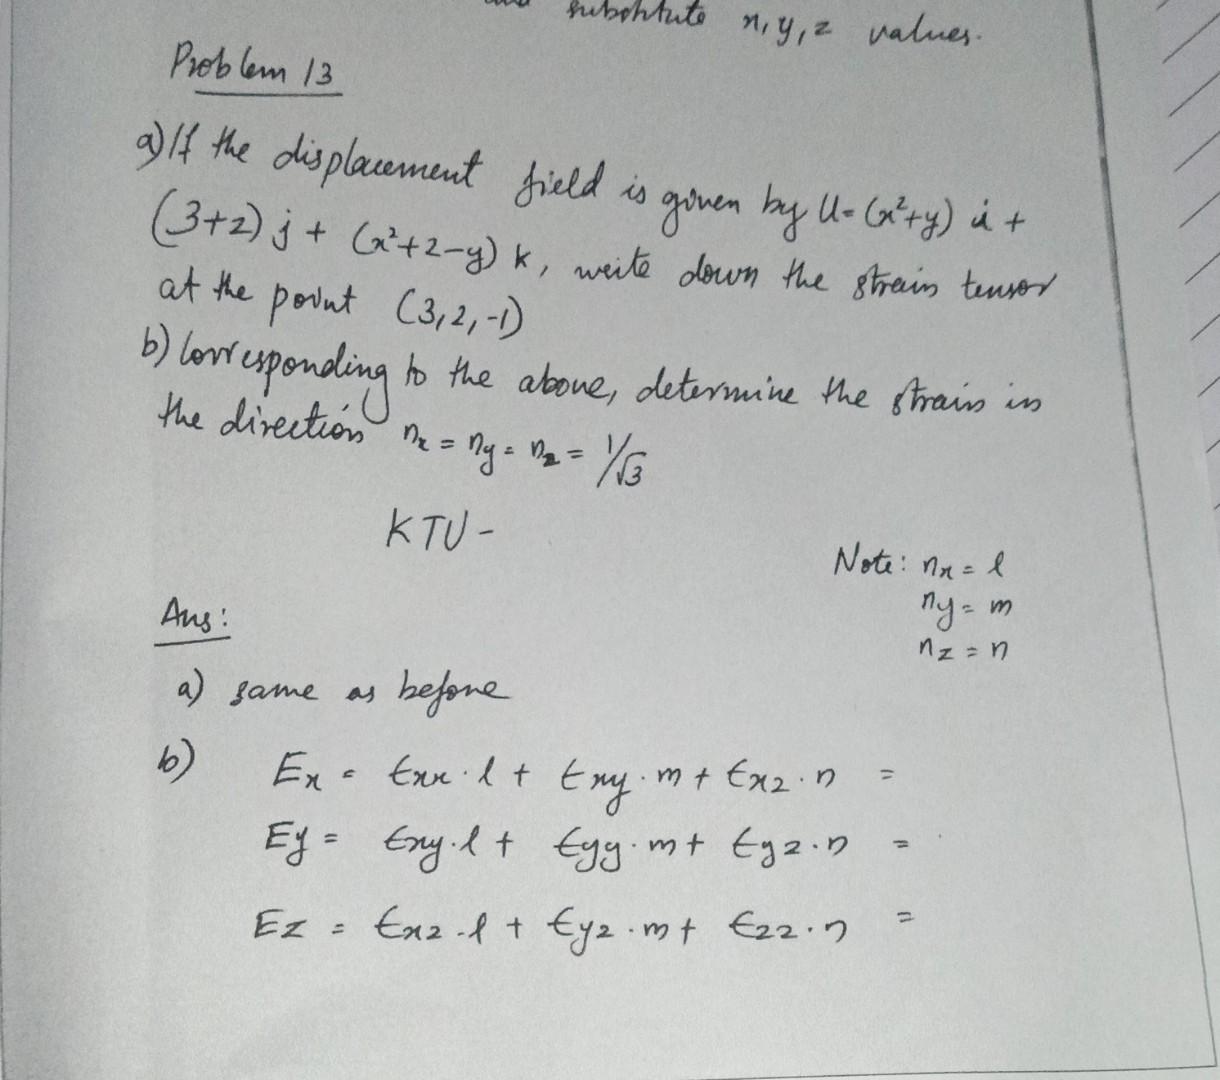 substitute x, y, z values.
Problem 13
a) If the displacement field is given by U = (x²+y) i +
(3+z) j + (x²+2-y) k, write down the strain tensor
at the point (3, 2, -1)
b) Corresponding to the above, determine the strain in
the direction nx = ny = nz = 1/√3
KTU -
Note: nx = l
ny = m
nz = n
Ans:
a) same as before
b) Ex = Exx · l + Exy · m + Exz · n =
Ey = Exy · l + Eyy · m + Eyz · n =
Ez = Exz · l + Eyz · m + Ezz · n =